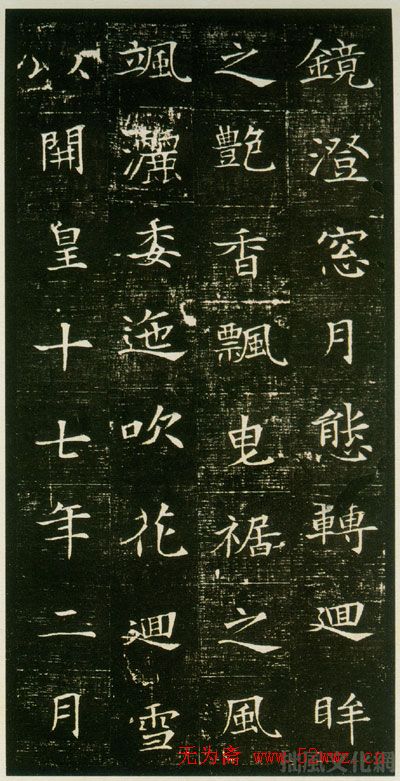 鏡澄窓月態轉迴眸
之艷香飄曳裾之風
颯灑委迤吹花迴雪
以開皇十七年二月
无为斋 www.52wwz.cn